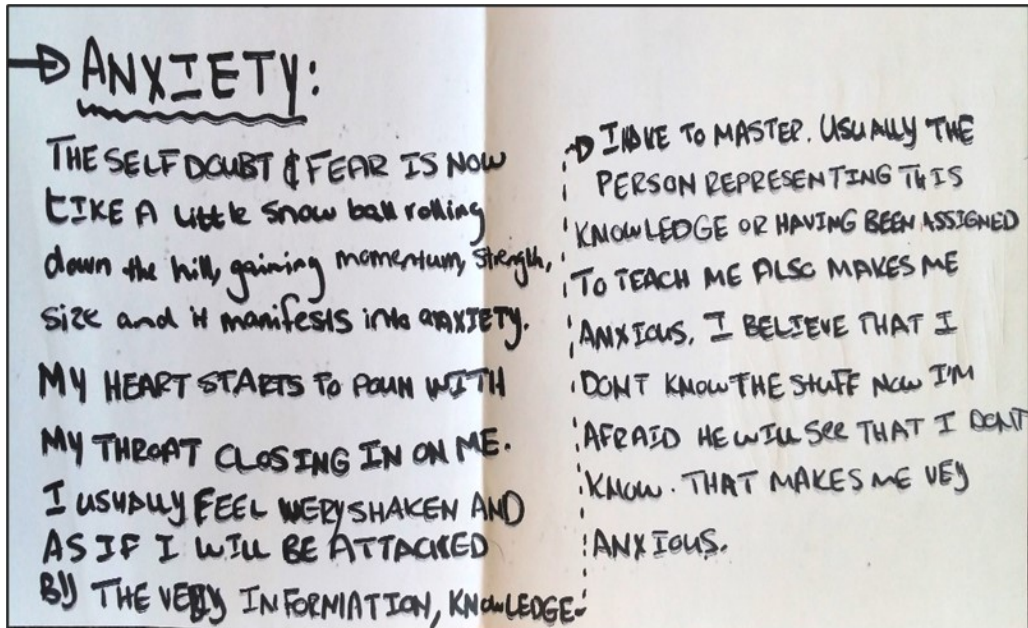 ANXIETY:
THE SELF DOUBT & FEAR IS NOW
LIKE A little snow ball rolling
down the hill, gaining momentum, strength,
size and it manifests into ANXIETY.
MY HEART STARTS TO POUN WITH
MY THROAT CLOSING IN ON ME.
I USUALLY FEEL VERY SHAKEN AND
AS IF I WILL BE ATTACKED
BY THE VERY INFORMATION, KNOWLEDGE
I HAVE TO MASTER. USUALLY THE
PERSON REPRESENTING THIS
KNOWLEDGE OR HAVING BEEN ASSIGNED
TO TEACH ME ALSO MAKES ME
ANXIOUS. I BELIEVE THAT I
DONT KNOW THE STUFF NOW I'M
AFRAID HE WILL SEE THAT I DONT
KNOW. THAT MAKES ME VEY
ANXIOUS.